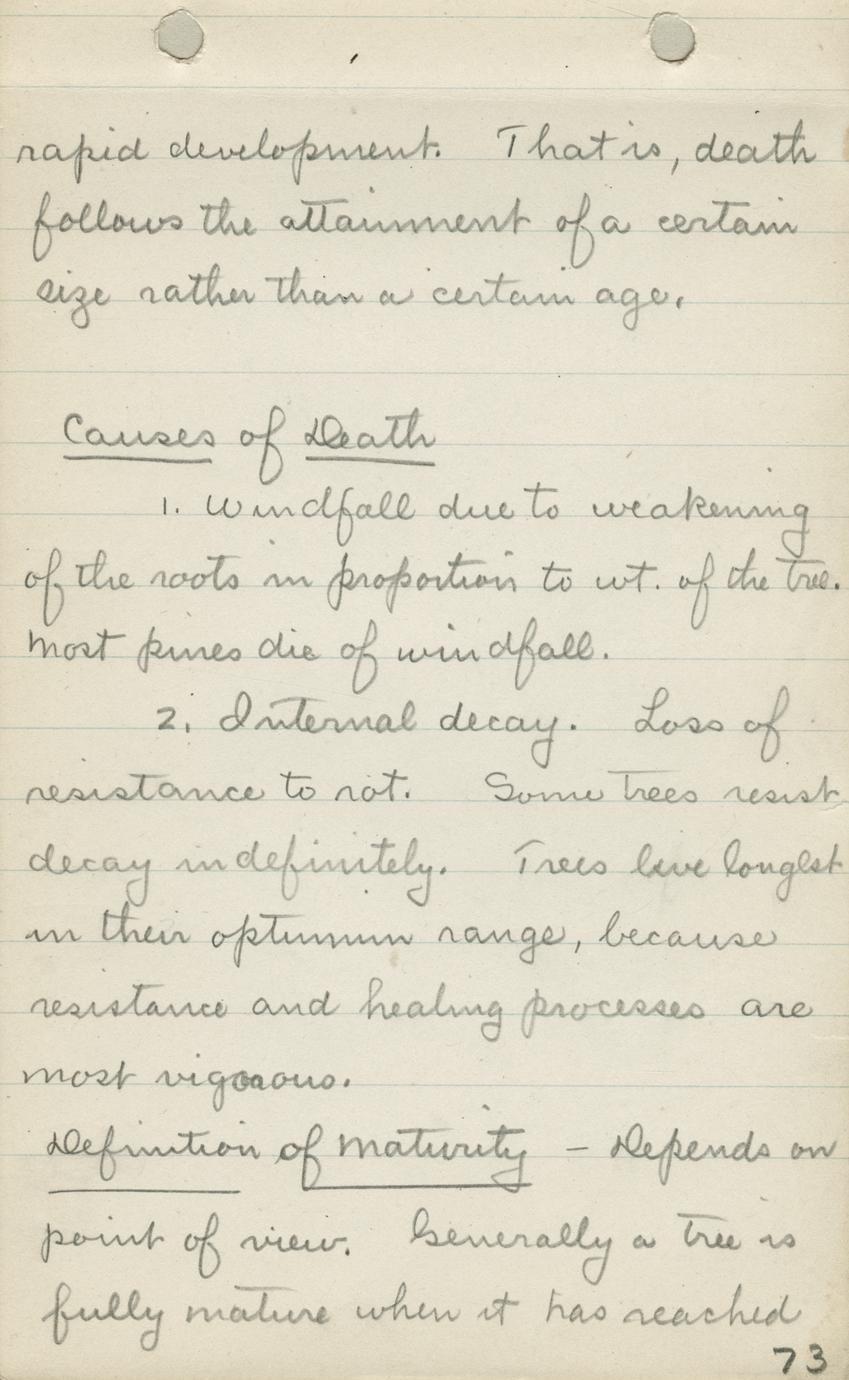 rapid development. That is, death
follows the attainment of a certain
size rather than a certain age.
Causes of Death
1. Windfall due to weakening
of the roots in proportion to wt. of the tree.
Most pines die of windfall.
2. Internal decay. Loss of
resistance to rot. Some trees resist
decay indefinitely. Trees live longest
in their optimum range, because
resistance and healing processes are
most vigorous.
Definition of Maturity – Depends on
point of view. Generally a tree is
fully mature when it has reached
73